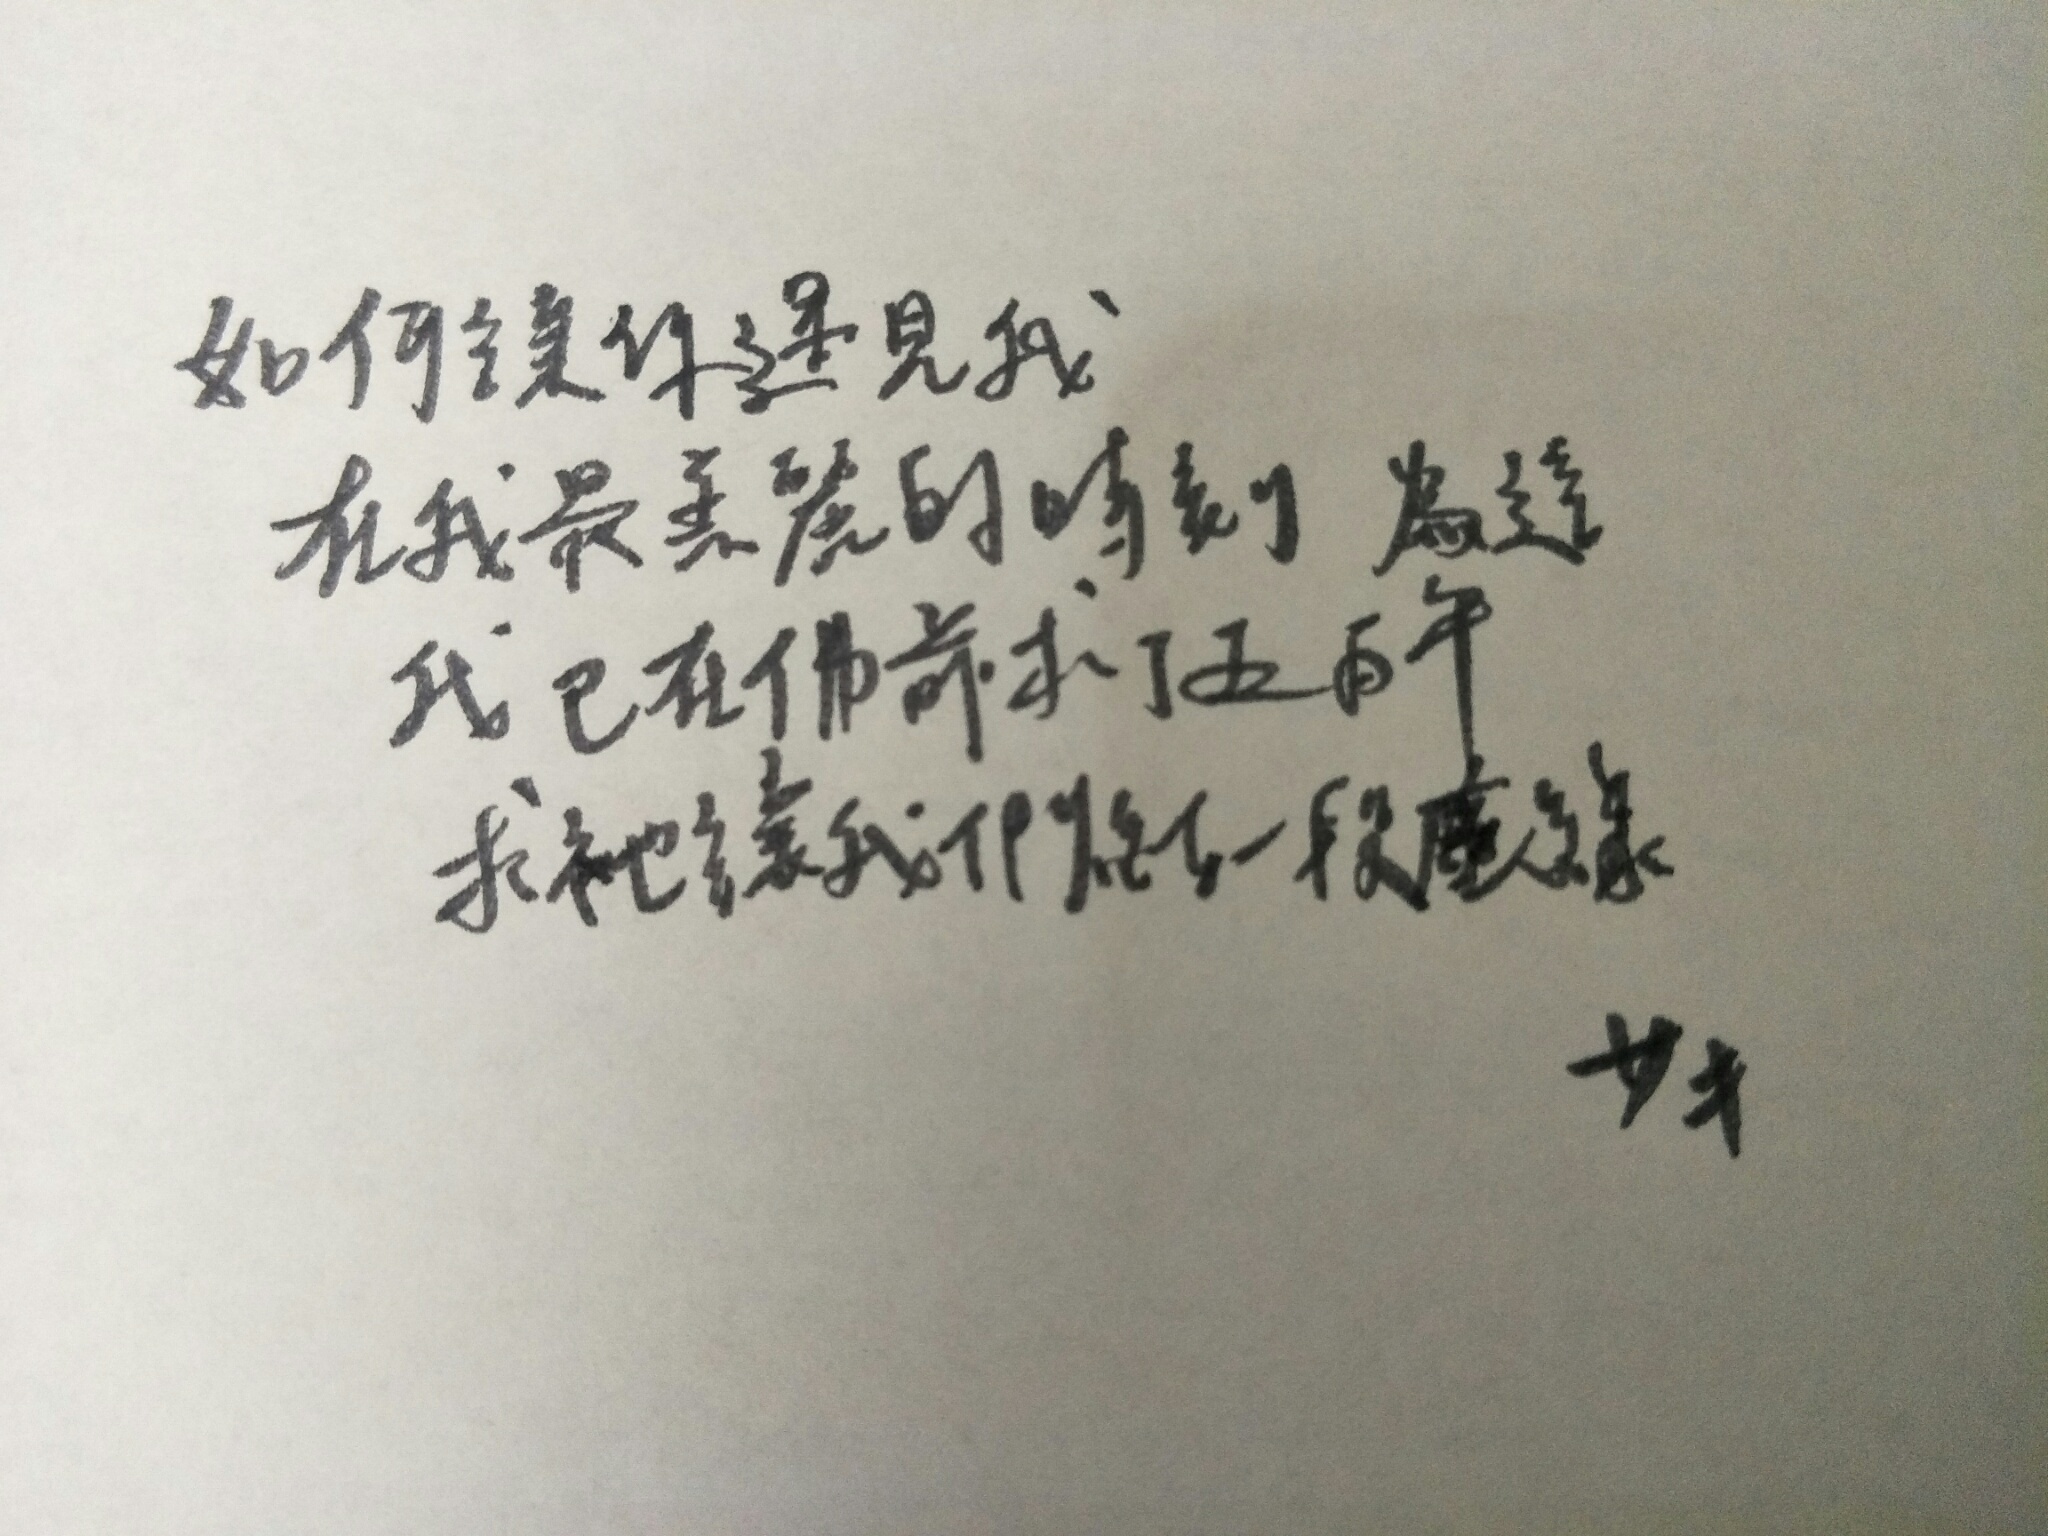 如何讓你遇見我
在我最美麗的時刻 為這
我已在佛前求了五百年
求祂讓我們結一段塵緣